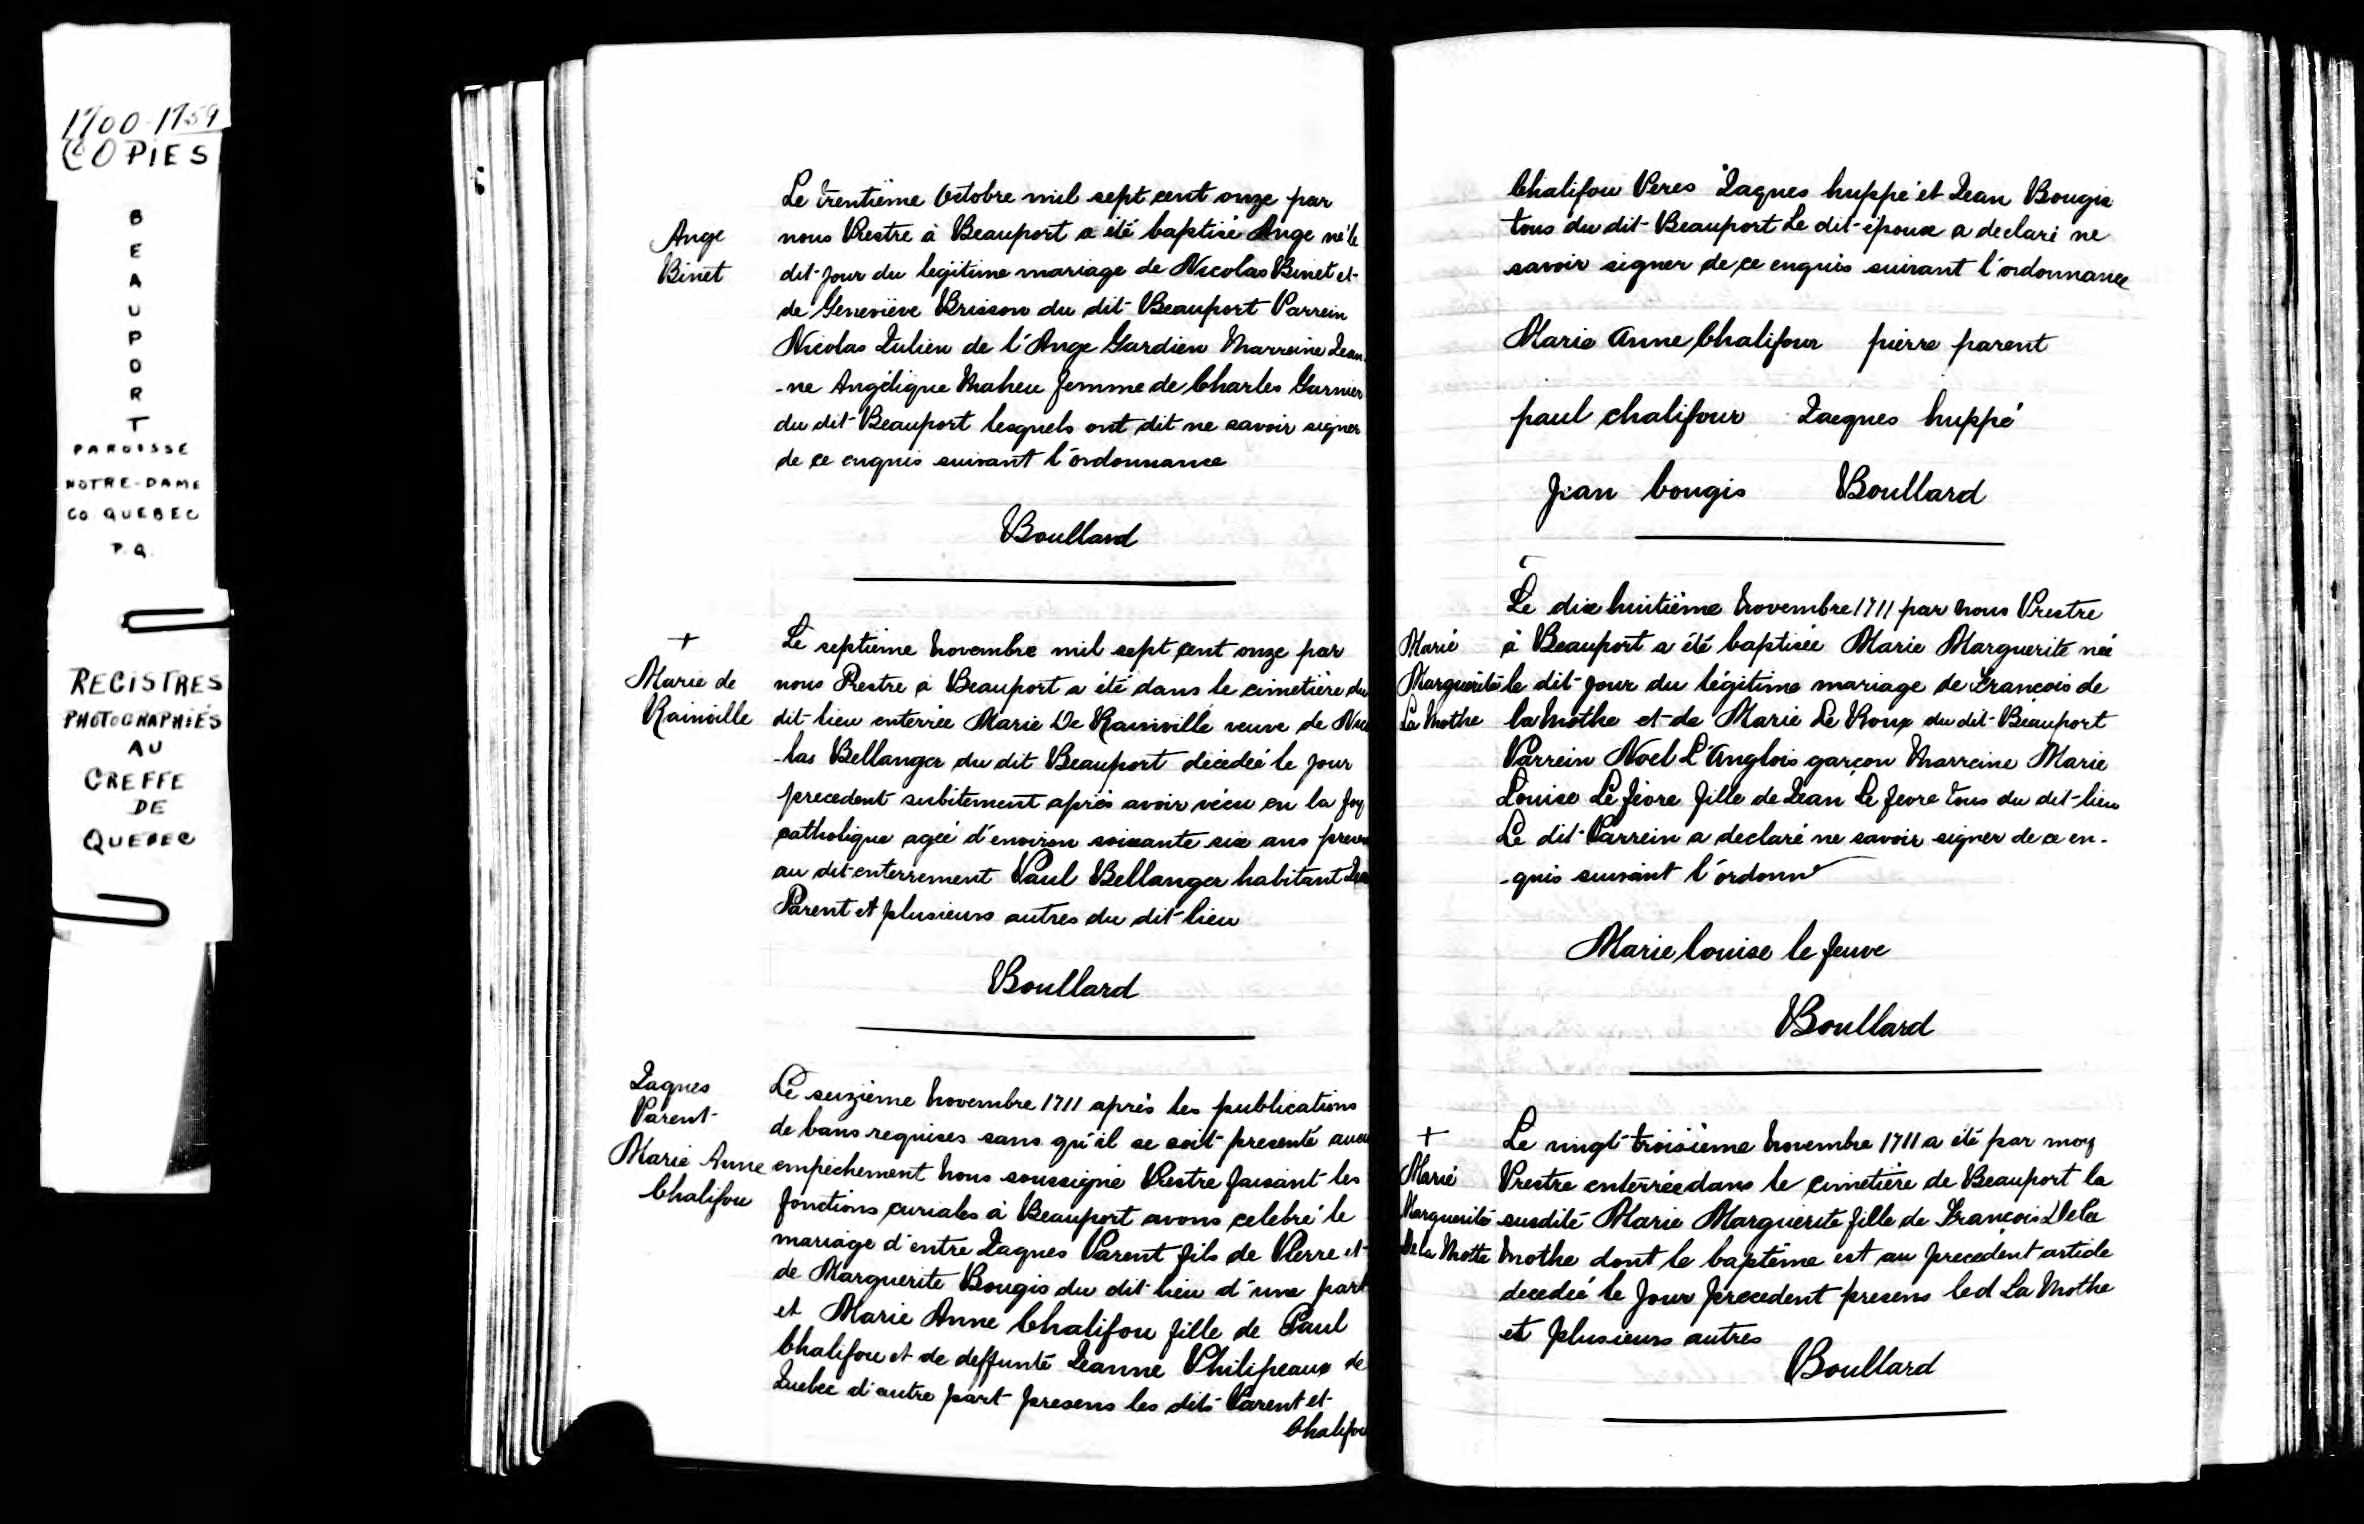 1700-1759
COPIES
BEAUPORT
PAROISSE
NOTRE-DAME
CO QUEBEC
P.Q.
REGISTRES
PHOTOGRAPHIÉS
AU
GREFFE
DE
QUEBEC
Ange
Binet
Le trentième Octobre mil sept cent onze par
nous Prestre à Beauport a été baptisé Ange né le
dit jour du legitime mariage de Nicolas Binet et
de Geneviève Brisson du dit Beauport Parrein
Nicolas Julien de l'Ange Gardien Marreine Jean
-ne Angélique Maheu femme de Charles Garnier
du dit Beauport lesquels ont dit ne savoir signer
de ce enquis suivant l'ordonnance
Boullard
+
Marie de
Rainville
Le septième Novembre mil sept cent onze par
nous Prestre à Beauport a été dans le cimetière du
dit lieu enterrée Marie De Rainville veuve de Nico
-las Bellanger du dit Beauport décedeé le jour
precedent subitement après avoir vécu en la foy
catholique ageé d'environ soixante six ans
au dit enterrement Paul Bellanger habitant
Parent et plusieurs autres du dit lieu
Boullard
Jaques
Parent
Marie Anne
Chalifou
Le seizième Novembre 1711 après les publications
de bans requises sans qu'il se soit presenté aucu
empêchement Nous soussigné Prestre faisant les
fonctions curiales à Beauport avons celebré le
mariage d'entre Jaques Parent fils de Pierre et
de Marguerite Bougis du dit lieu d'une part
et Marie Anne Chalifou fille de Paul
Chalifou et de deffunte Jeanne Philipeaux de
Quebec d'autre part presens les dits Parent et
Chalifou
Chalifou Peres Jaques huppé et Jean Bougis
tous du dit Beauport Le dit époux a declaré ne
savoir signer de ce enquis suivant l'ordonnance
Marie Anne Chalifour pierre parent
paul chalifour Jacques huppé
Jean bougis Boullard
Marie
Marguerite
La Mothe
Le dix huitième Novembre 1711 par nous Prestre
à Beauport a été baptisée Marie Marguerite née
le dit jour du légitime mariage de François de
la Mothe et de Marie Le Roux du dit Beauport
Parrein Noel L'Anglois garçon Marreine Marie
Louise Le fevre fille de Jean Le fevre tous du dit lieu
Le dit Parrein a declaré ne savoir signer de ce en-
-quis suivant l'ordonn
Marie louise le feuve
Boullard
+
Marie
Marguerite
De la Motte
Le vingt troisième Novembre 1711 a été par moy
Prestre enterrée dans le cimetière de Beauport la
susdite Marie Marguerite fille de François De la
Mothe dont le baptême est au precedent article
decedeé le jour precedent presens led La Mothe
et plusieurs autres
Boullard